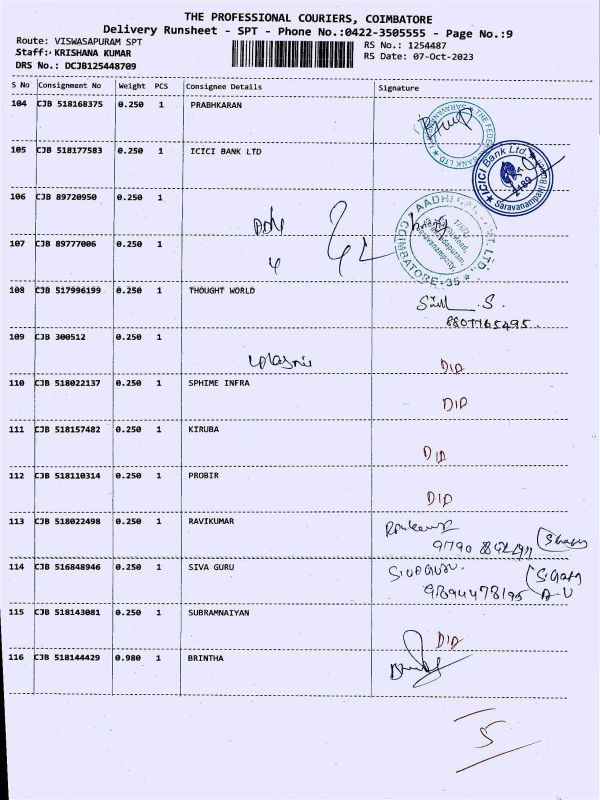 THE PROFESSIONAL COURIERS, COIMBATORE
Delivery Runsheet - SPT - Phone No.:0422-3505555 - Page No.:9
Route: VISWASAPURAM SPT
RS No.: 1254487
Staff: KRISHANA KUMAR
RS Date: 07-Oct-2023
DRS No.: DCJB125448709
S No Consignment No Weight PCS Consignee Details Signature
104 CJB 518168375 0.250 1 PRABHKARAN
105 CJB 518177583 0.250 1 ICICI BANK LTD
ICICI Bank Ltd
106 CJB 89720950 0.250 1
107 CJB 89777006 0.250 1
COIMBATORE-35
108 CJB 517996199 0.250 1 THOUGHT WORLD
8807765495.
109 CJB 300512 0.250 1
DID
110 CJB 518022137 0.250 1 SPHIME INFRA
DID
111 CJB 518157482 0.250 1 KIRUBA
DID
112 CJB 518110314 0.250 1 PROBIR
DID
113 CJB 518022498 0.250 1 RAVIKUMAR
114 CJB 516848946 0.250 1 SIVA GURU
115 CJB 518143081 0.250 1 SUBRAMNAIYAN
DID
116 CJB 518144429 0.980 1 BRINTHA
5